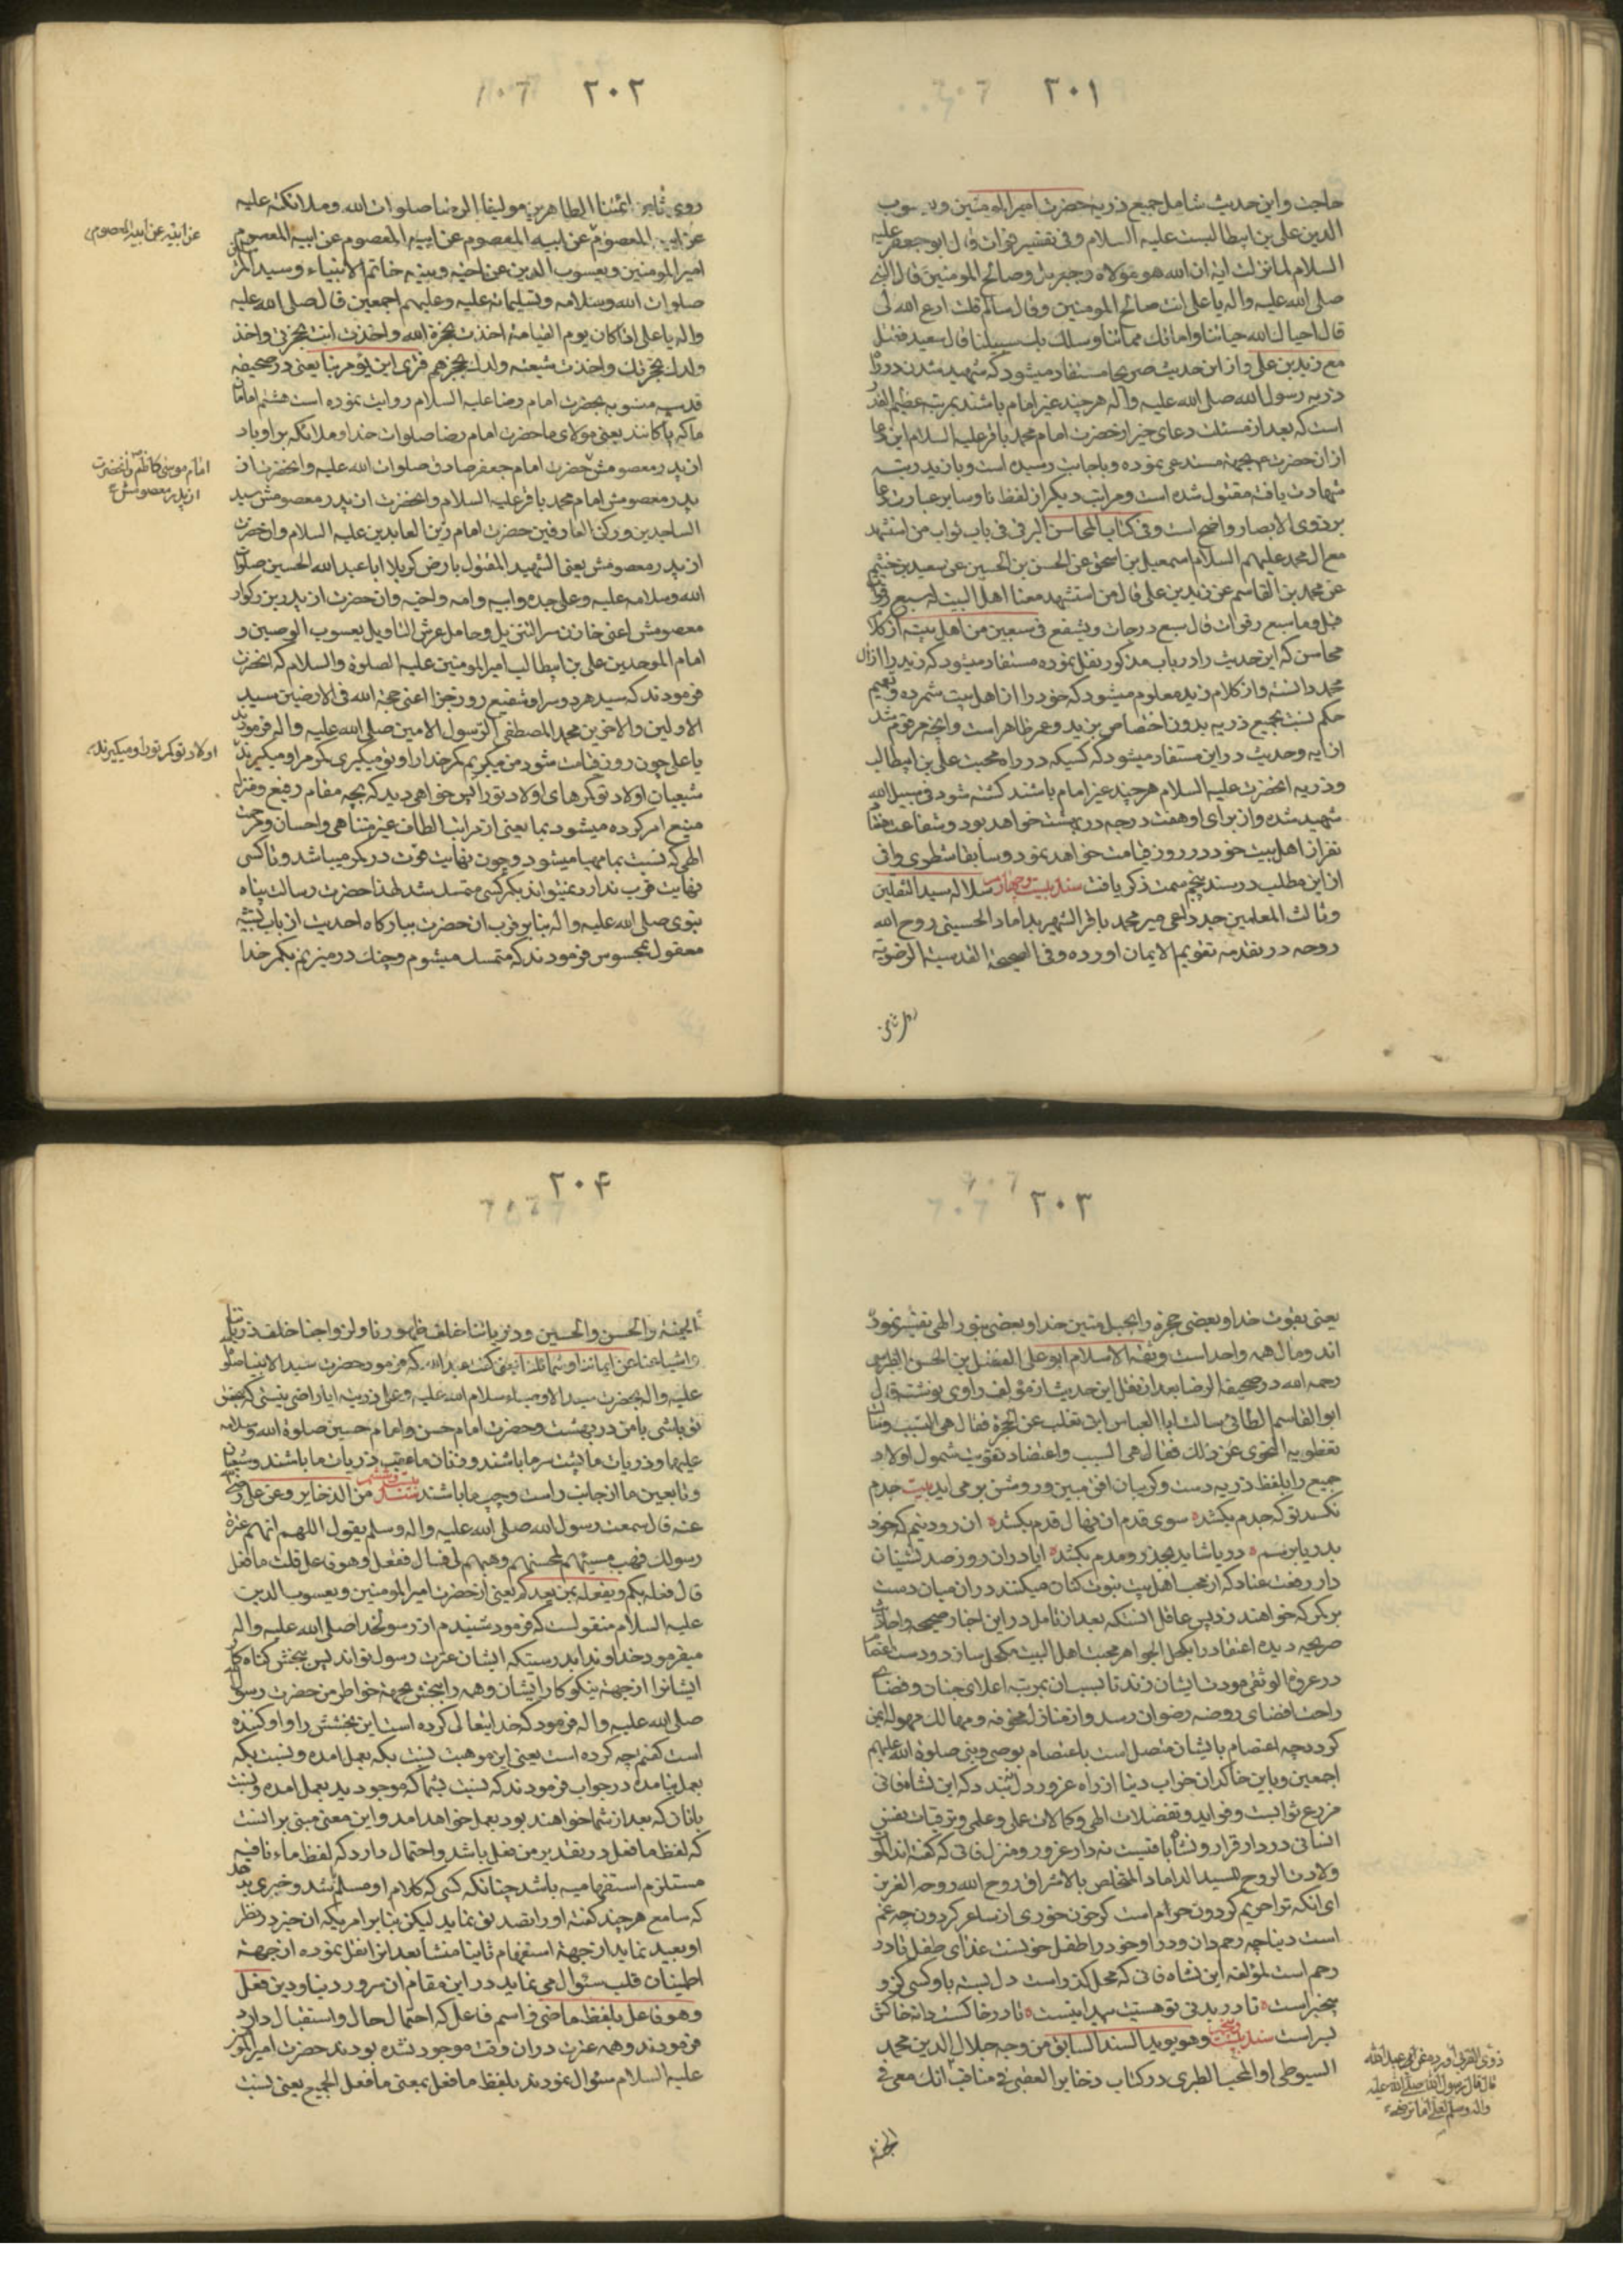 ۲۰۱
حاجت و این حدیث شامل جمیع ذریه حضرت امیر المومنین و یعسوب
الدین علی بن ابیطالبست علیه السلام و فی تفسیر فرات قال ابو جعفر علیه
السلام لما نزلت ایة ان الله هو مولاه و جبریل و صالح المومنین قال النبی
صلی الله علیه واله یا علی انت صالح المومنین و قال سالم قلت ادع الله لی
قال احیاک الله حیاتنا و اماتک مماتنا و سلک بک سبیلنا قال سعید فقتل
مع زید بن علی و از این حدیث صریحا مستفاد میشود که شهید شدن در
ذریه رسول الله صلی الله علیه واله هر چند غیر امام باشند بمرتبه عظیم القدر
است که بعد از مسئلت دعای خیر از حضرت امام محمد باقر علیه السلام این دعا
از ان حضرت بجهة مستدعی نموده و باجابت رسیده است و با زید رتبه
شهادت یافته مقتول شده است و مراتب دیگر از لفظ نا و سایر عبارت دعا
بر ذوی الابصار واضح است و فی کتاب المحاسن البرقی فی باب ثواب من استشهد
مع ال محمد علیهم السلام اسمعیل بن اسحق عن الحسن بن الحسین عن سعید بن خثیم
عن محمد بن القاسم عن زید بن علی قال من استشهد معنا اهل البیت له سبع رقوات
قیل و ما سبع رقوات قال سبع درجات و یشفع فی سبعین من اهل بیته از کلام
محاسن که این حدیث را در باب مذکور نقل نموده مستفاد میشود که زید را از ال
محمد دانسته و از کلام زید معلوم میشود که خود را از اهل بیت شمرده و تعمیم
حکم نسبت بجمیع ذریه بدون اختصاص بزید و عمر ظاهر است و انچه مرقوم شد
از ایه و حدیث در این مستفاد میشود که کسیکه در راه محبت علی بن ابیطالب
و ذریه انحضرت علیه السلام هر چند غیر امام باشند کشته شود فی سبیل الله
شهید شده و از برای او هفت درجه در بهشت خواهد بود و شفاعت هفتاد
نفر از اهل بیت خود در روز قیامت خواهد نمود و سابقا شطری وافی
از این مطلب در سند پنجم سمت ذکر یافت سند بیست و چهارم سلاله سید الثقلین
و ثالث المعلمین جد داعی میر محمد باقر الشهیر بداماد الحسینی روح الله
روحه در تقدمه تقویم الایمان اورده و فی الصحیفة القدسیة الرضویة
۲۰۲
روی ثامن ائمتنا الطاهرین مولینا الرضا صلوات الله و ملائکته علیه
عن ابیه المعصوم عن ابیه المعصوم عن ابیه المعصوم عن ابیه المعصوم
امیر المومنین و یعسوب الدین عن اخیه و نبیه خاتم الانبیاء و سید المرسلین
صلوات الله و سلامه و تسلیماته علیه و علیهم اجمعین قال صلی الله علیه
واله یا علی اذا کان یوم القیامة اخذت بحجزة الله و اخذت انت بحجزتی و اخذ
ولدک بحجزتک و اخذت شیعة ولدک بحجزهم فتری این یؤمر بنا یعنی در صحیفه
قدسیه منسوبه بحضرت امام رضا علیه السلام روایت نموده است هشتم امامان
ما که پاکانند یعنی مولای ما حضرت امام رضا صلوات خدا و ملائکه بر او باد
از پدر معصومش حضرت امام جعفر صادق صلوات الله علیه و انحضرت از
پدر معصومش امام محمد باقر علیه السلام و انحضرت از پدر معصومش سید
الساجدین و رکن العارفین حضرت امام زین العابدین علیه السلام و ان حضرت
از پدر معصومش یعنی الشهید المقتول بارض کربلا ابا عبد الله الحسین صلوات
الله و سلامه علیه و علی جده و ابیه و امه و اخیه و ان حضرت از پدر بزرگوار
معصومش اعنی خازن سر التنزیل و حامل عرش التاویل یعسوب الوصیین و
امام الموحدین علی بن ابیطالب امیر المومنین علیه الصلوة والسلام که انحضرت
فرمودند که سید هر دو سرا و شفیع روز جزا اعنی حجة الله فی الارضین سید
الاولین والاخرین محمد المصطفی الرسول الامین صلی الله علیه واله فرمودند
یا علی چون روز قیامت شود من میگیرم کمر خدا را و تو میگیری کمر مرا و میگیرند
شیعیان اولاد تو کمرهای اولاد تو را پس خواهی دید که بچه مقام رفیع و منزل
منیع امر کرده میشود بما یعنی از مراتب الطاف غیر متناهی و احسان و رحمت
الهی که نسبت بما مهیا میشود و چون نهایت قوت در کمر میباشد و تا کسی
نهایت قرب ندارد نمیتواند بکمر کسی متمسک شد لهذا حضرت رسالت پناه
نبوی صلی الله علیه واله بنا بر قرب ان حضرت ببارگاه احدیت از باب تشبیه
معقول بمحسوس فرمودند که متمسک میشوم و چنک در میزنم بکمر خدا
عن ابیه عن ابیه المعصوم
امام موسی کاظم و انحضرت
از پدر معصومش
اولاد تو کمر تو را و میگیرند
۲۰۳
یعنی بقوت خدا و بعضی حجزه را بحبل متین خدا و بعضی بنور الهی تفسیر نموده
اند و مال همه واحد است و ثقة الاسلام ابو علی الفضل بن الحسن الطبرسی
رحمه الله در صحیفة الرضا بعد از نقل این حدیث از مؤلف راوی نوشته قال
ابو القاسم الطائی سالت ابا العباس ابن تغلب عن الحجزة فقال هی السبب و سالت
نفطویه النحوی عن ذلک فقال هی السبب و اعتضاد تقویت شمول اولاد
جمیع را بلفظ ذریه دست و گریبان افق مبین و روشن بر می اید بیت
سوی قدم ان نهال قدم بکشد ان رود نیم که خود
بدریا برسم دریا شاید بجذر و مدم بکشد ایا در ان روز صدر نشینان
دار رفعت عناد که از محب اهل بیت نبوت کتان میکنند در ان میان دست
بر کمر که خواهند زد پس عاقل انستکه بعد از تامل در این اخبار صحیحه و احادیث
صریحه دیده اعتقاد را بکحل الجواهر محبت اهل البیت مکحل سازد و دست اعتصام
در عروة الوثقی مودت ایشان زند تا بسبب ان بمرتبه اعلای جنان و فضای
راحت افضای روضه رضوان رسد و از منازل مخوفه و مهالک مهوله ایمن
کردد چه اعتصام بایشان متصل است باعتصام بوصی و نبی صلوة الله علیهم
اجمعین و باین خاکدان خواب دنیا از راه غرور دل نبندد که این نشاه فانی
مزرع ثوابت و فواید و تفضلات الهی و کمالات علی و علمی و ترقیات نفس
انسانی در دار قرار و نشاه باقیست نه دار غرور و منزل فانی که گفته اند
السید الداماد المتخلص بالاشراق روح الله روحه العزیز
ای انکه ترا حریم کردون حرام است کر خون خوری از ساغر کردون چه غم
است دنیا چه رحم دان و در او خود را طفل خونست غذای طفل تا در
رحم است لمؤلفه این نشاه فانی که محل گذر است دل بسته باو کسی کز و
بیخبر است تا در بدنی تو هستیت پیدا نیست تا در خاکست دانه خاکش
بسر است سند بیست و پنجم و هو یوید السند السابق من وجه جلال الدین محمد
السیوطی و المحب الطبری در کتاب ذخایر العقبی فی مناقب انک معی فی
ذوی القربی اورده عن ابی عبد الله
قال قال رسول الله صلی الله علیه
واله وسلم لعلی اما ترضی
۲۰۴
الجنة والحسن والحسین و ذریاتنا خلف ظهورنا و ازواجنا خلف ذریاتنا
و اشیاعنا عن ایماننا و شمائلنا یعنی گفت عبد الله که فرمود حضرت سید الانبیا صلوات
علیه واله بحضرت سید الاوصیاء سلام الله علیه و علی ذریته ایا راضی نیستی که بحق
تو باشی با من در بهشت و حضرت امام حسن و امام حسین صلوة الله و سلامه
علیهما و ذریات ما پشت سر ما باشند و زنان ما عقب ذریات ما باشند و شیعیان
و تابعین ما از جانب راست و چپ ما باشند سند بیست و ششم من الذخایر و عن علی رضی
عنه قال سمعت رسول الله صلی الله علیه واله وسلم یقول اللهم انهم عترة
رسولک فهب مسیئهم لمحسنهم و هبهم لی قال ففعل و هو فاعل قلت ما فعل
قال فعله بکم و یفعله بمن بعدکم یعنی از حضرت امیر المومنین و یعسوب الدین
علیه السلام منقولست که فرمود شنیدم از رسولخدا صلی الله علیه واله
میفرمود خداوندا بدرستیکه ایشان عترت رسول تواند پس ببخش گناه کار
ایشانرا از جهة نیکوکار ایشان و همه را ببخش بجهة خواطر من حضرت رسول
صلی الله علیه واله فرمود که خدایتعالی کرده است این بخشش را و او کننده
است گفتم چه کرده است یعنی این موهبت نسبت بکه بعمل امده و نسبت بکه
بعمل نیامده در جواب فرمودند که نسبت بشما که موجودید بعمل امده و نسبت
بانان که بعد از شما خواهند بود بعمل خواهد امد و این معنی مبنی بر انست
که لفظ ما فعل در تقدیر من فعل باشد و احتمال دارد که لفظ ماء نافیه
مستلزم استفهامیه باشد چنانکه کسی که کلام او مسلم شد و خبری بدهد
که سامع هر چند گفته او را تصدیق نماید لیکن بنا بر امریکه ان خبر در نظر
او بعید نماید از جهة استفهام ثانیا منشا بعد انرا نقل نموده از جهة
اطمینان قلب سئوال می نماید در این مقام ان سرور دنیا و دین فعل
و هو فاعل بلفظ ماضی و اسم فاعل که احتمال حال و استقبال دارد
فرمودند و همه عترت در ان وقت موجود نشده بودند حضرت امیر المومنین
علیه السلام سئوال نمودند بلفظ ما فعل بمعنی ما فعل الجمیع یعنی نسبت